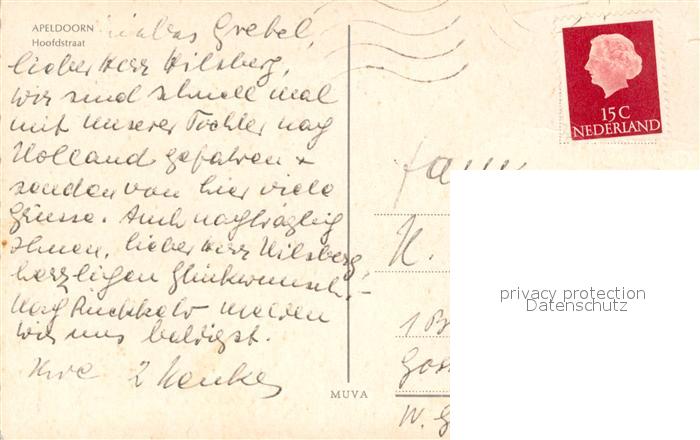 APELDOORN
Hoofdstraat
Grebel,
lieber Herr Hilsberg,
wir sind schnell mal
mit unserer Tochter nach
Holland gefahren +
senden von hier viele
Grüsse. Auch nachträglich
Ihnen, lieber Herr Hilsberg,
herzlichen Glückwunsch! -
Nach Rückkehr melden
wir uns baldigst.
Ihre 2
MUVA
15 C
NEDERLAND
Fam
H.
1 B
W. G
privacy protection
Datenschutz